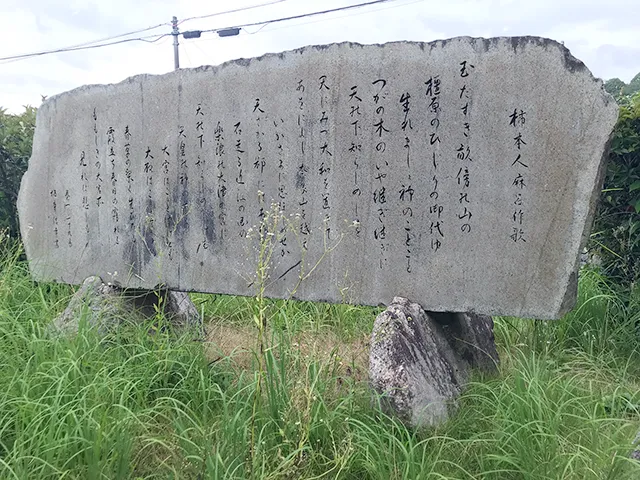 柿本人麻呂作歌
玉だすき畝傍の山の
橿原のひじりの御代ゆ
生れましし神のことごと
つがの木のいや継ぎ継ぎに
天の下知らしめ
天にみつ大和を置きて
あをによし奈良山越えて
いかさまに思ほしめせか
天ざかる鄙
石走る近江の国の
楽浪の大津の宮
天の下知らし
天皇の神の
大宮は
大殿は
春草の繁く生
霞立つ春日の霧れる
ももしきの大宮所
見れば悲